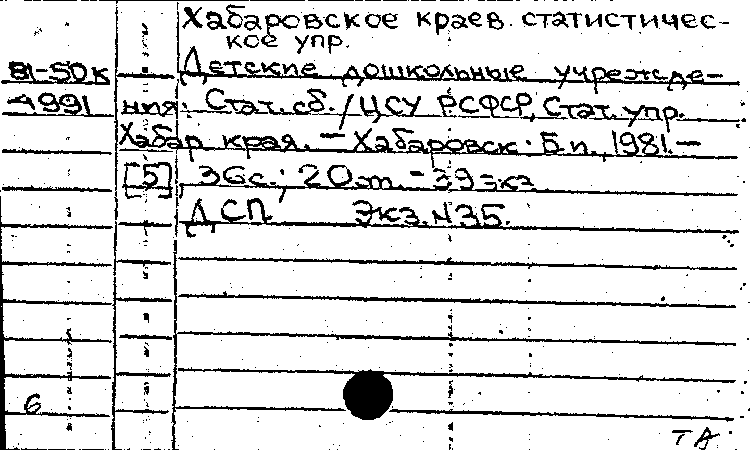 Хабаровское краев. статистичес-
кое упр.
81-50к Детские дошкольные учрежде-
4991 ния: Стат. сб. / ЦСУ РСФСР, Стат. упр.
Хабар. края. — Хабаровск: Б.и., 1981. —
[5], 36с.; 20см. - 39экз.
ДСП Экз. N35.
6
ТА